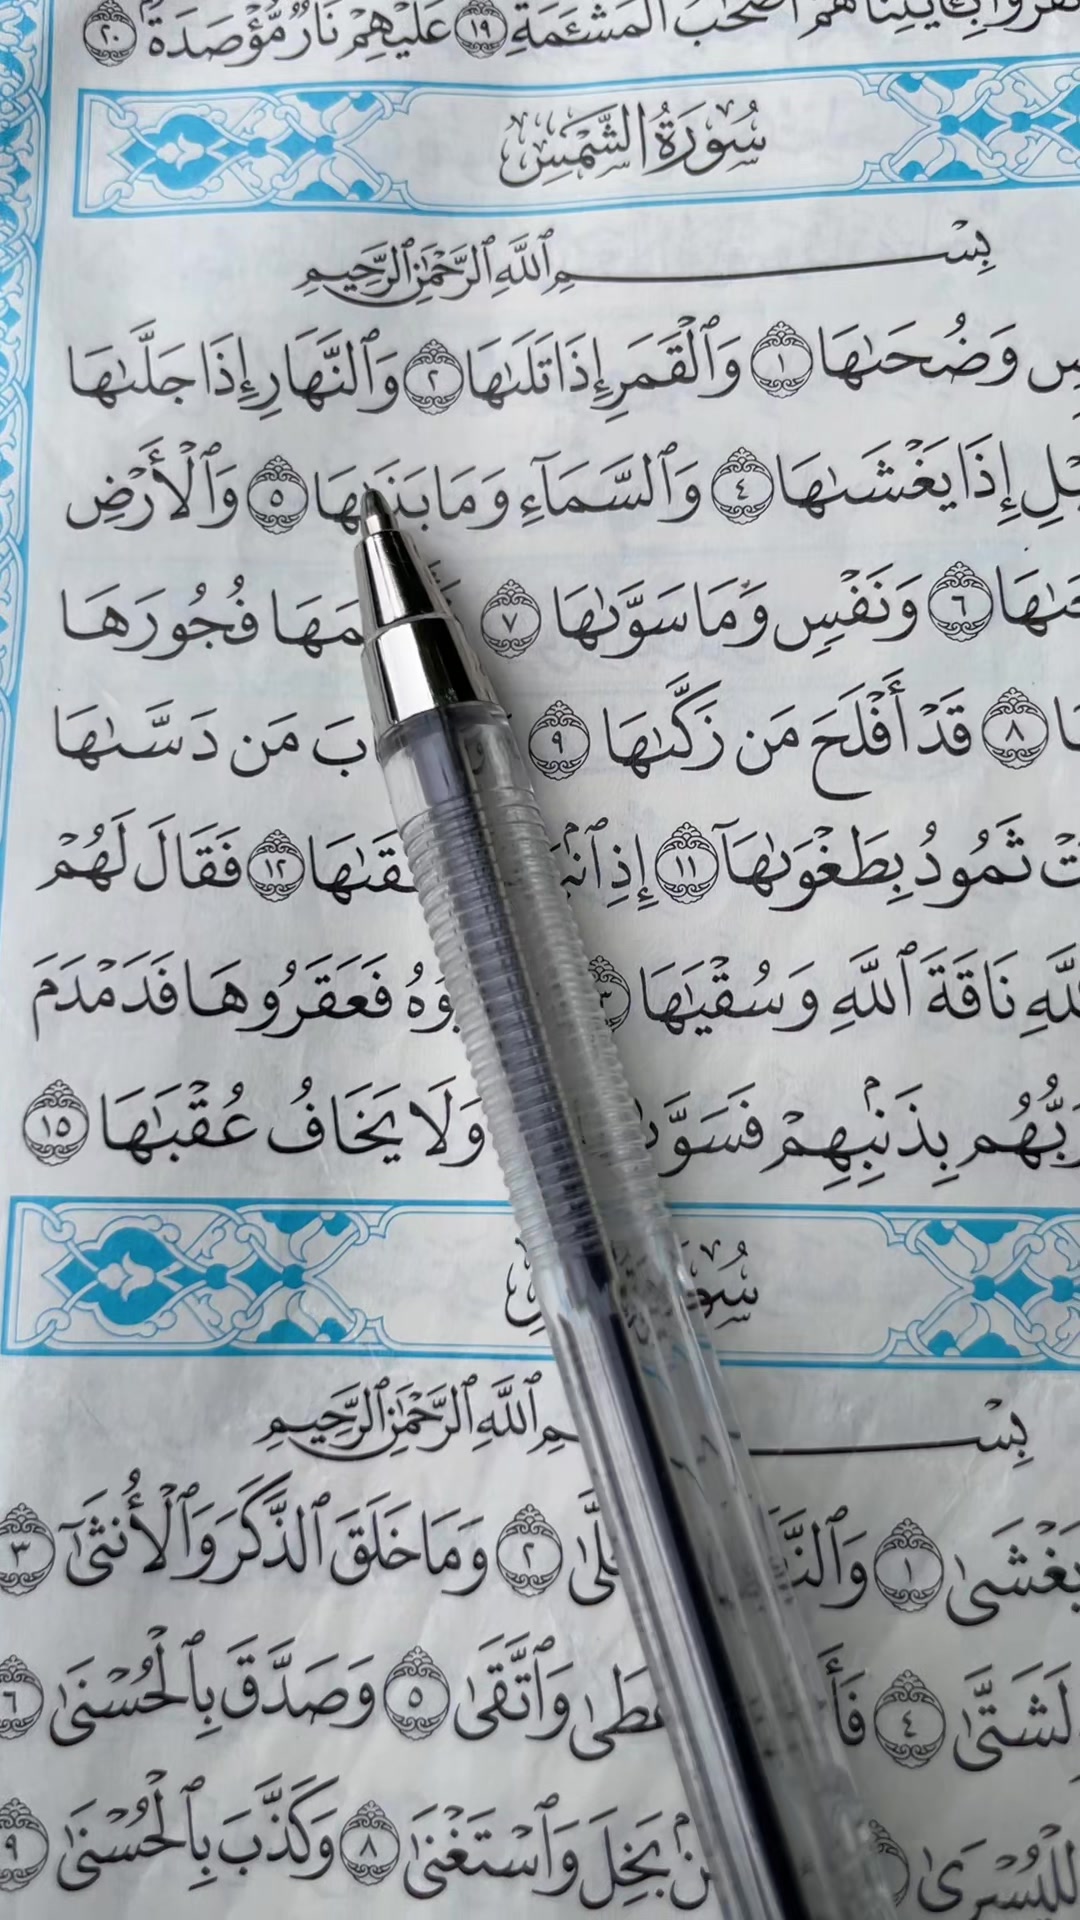 بِـَٔايَٰتِنَا هُمْ أَصْحَٰبُ ٱلْمَشْـَٔمَةِ ١٩ عَلَيْهِمْ نَارٌ مُّؤْصَدَةٌۢ ٢٠
سُورَةُ الشَّمْسِ
بِسْمِ ٱللَّهِ ٱلرَّحْمَٰنِ ٱلرَّحِيمِ
وَضُحَىٰهَا ١ وَٱلْقَمَرِ إِذَا تَلَىٰهَا ٢ وَٱلنَّهَارِ إِذَا جَلَّىٰهَا
إِذَا يَغْشَىٰهَا ٤ وَٱلسَّمَآءِ وَمَا بَنَىٰهَا ٥ وَٱلْأَرْضِ
٦ وَنَفْسٍ وَمَا سَوَّىٰهَا ٧ فُجُورَهَا
٨ قَدْ أَفْلَحَ مَن زَكَّىٰهَا ٩ مَن دَسَّىٰهَا
ثَمُودُ بِطَغْوَىٰهَآ ١١ إِذِ ١٢ فَقَالَ لَهُمْ
نَاقَةَ ٱللَّهِ وَسُقْيَٰهَا فَعَقَرُوهَا فَدَمْدَمَ
رَبُّهُم بِذَنۢبِهِمْ وَلَا يَخَافُ عُقْبَٰهَا ١٥
بِسْمِ ٱللَّهِ ٱلرَّحْمَٰنِ ٱلرَّحِيمِ
يَغْشَىٰ ١ ٢ وَمَا خَلَقَ ٱلذَّكَرَ وَٱلْأُنثَىٰٓ ٣
لَشَتَّىٰ ٤ وَٱتَّقَىٰ ٥ وَصَدَّقَ بِٱلْحُسْنَىٰ ٦
لِلْيُسْرَىٰ بَخِلَ وَٱسْتَغْنَىٰ ٨ وَكَذَّبَ بِٱلْحُسْنَىٰ ٩